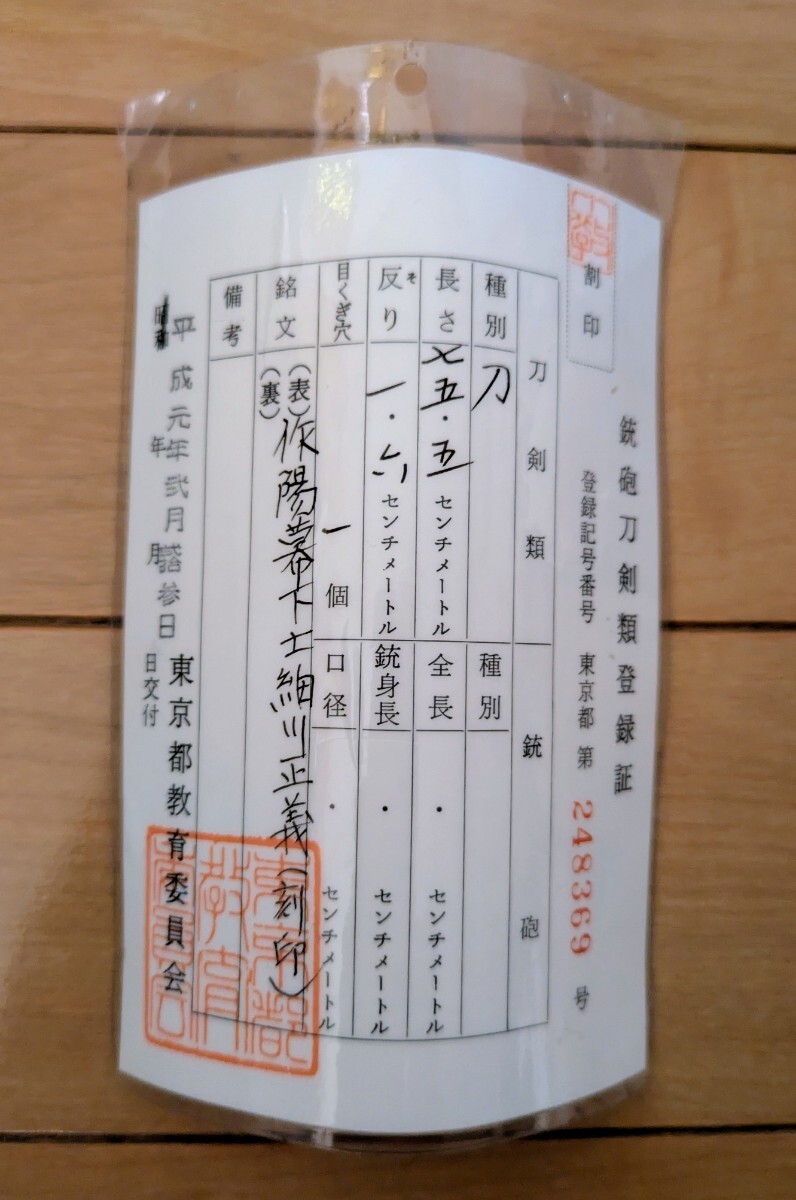 割印
銃砲刀剣類登録証
登録記号番号 東京都 第 248369 号
刀剣類
銃砲
種別
刀
種別
長さ
七五・五 センチメートル
全長
・ センチメートル
反り
そ
一・六 センチメートル
銃身長
・ センチメートル
目くぎ穴
一個
口径
・ センチメートル
銘文
(表) 作陽幕下士細川正義(刻印)
(裏)
備考
昭和
平成元年弐月
参日
年
月
日交付
東京都教育委員会
東京都教育委員会